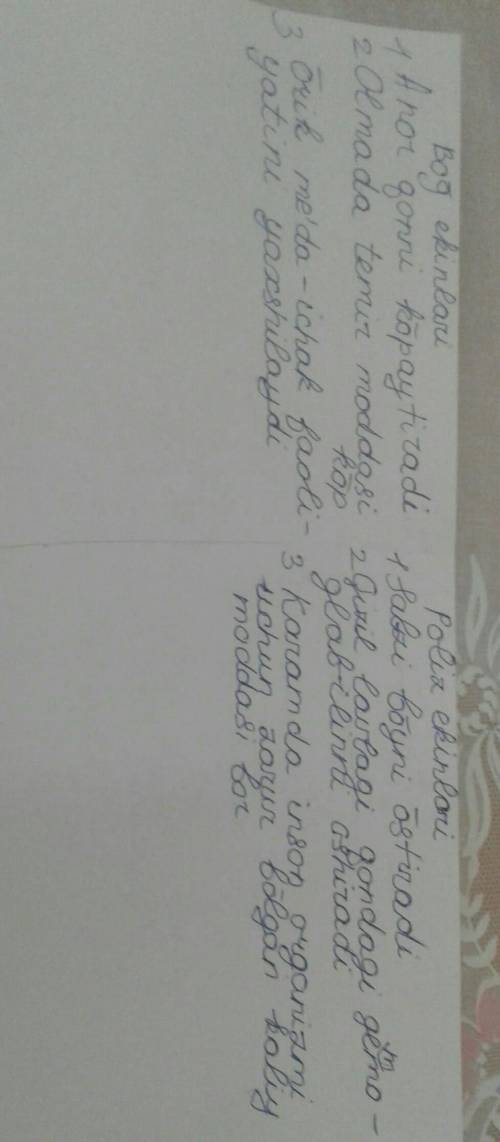 Bog ekinlari
1 Anor qonni kōpaytiradi
2 Olmada temir moddasi
kōp
3 Ōrik me'da-ichak faoli-
yatini yaxshilaydi
Poliz ekinlari
1 Sabzi bōyni ōstiradi
2 Qizil lavlagi qondagi gemo-
glabilinni oshiradi
3 Karamda inson organizmi
uchun zarur bōlgan kaliy
moddasi bor